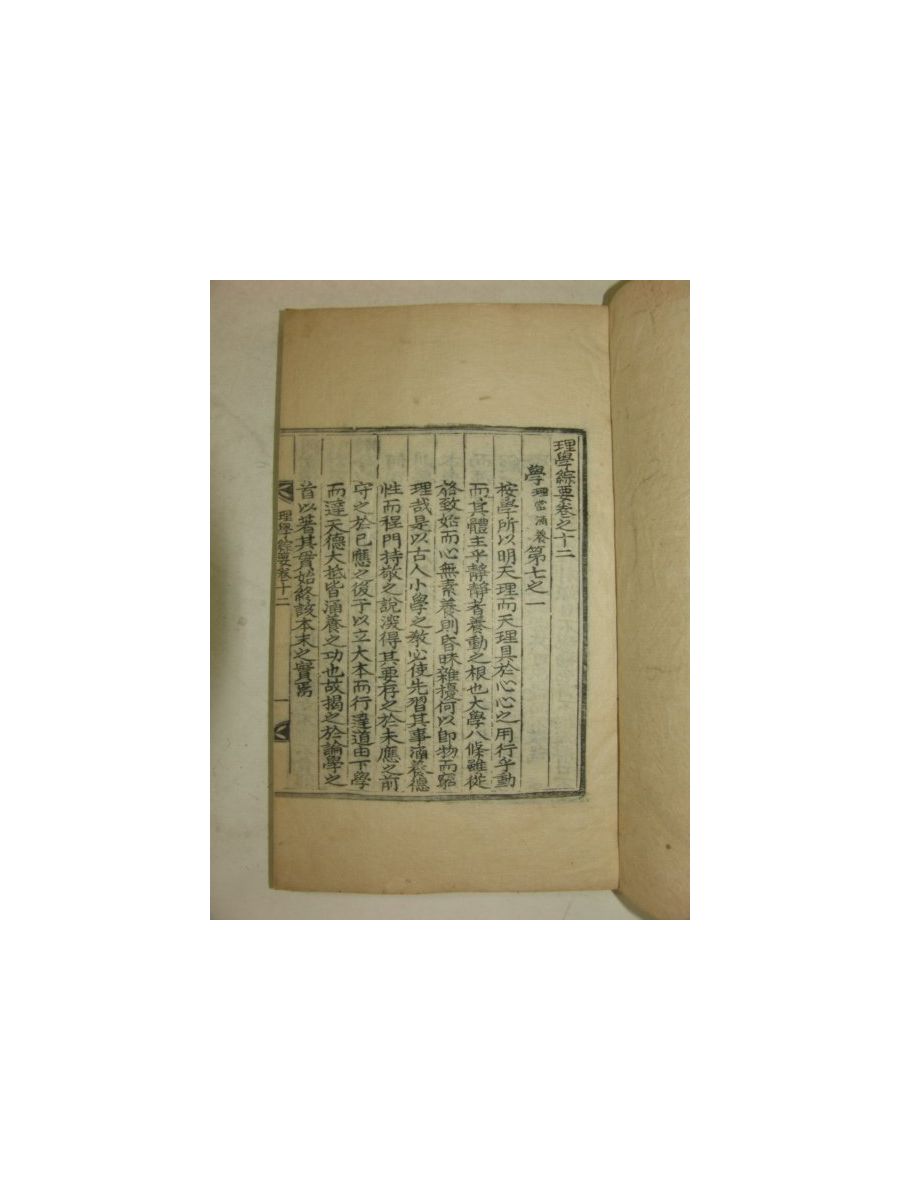 理學綜要卷之十二
學理當涵養第七之一
按學所以明天理而天理具於心心之用行乎動
而其體主乎靜靜者養動之根也大學八條雖從
格致始而心無素養則昏昧雜擾何以卽物而窮
理哉是以古人小學之敎必使先習其事涵養德
性而程門持敬之說深得其要存之於未應之前
守之於已應之後于以立大本而行達道由下學
而達天德大抵皆涵養之功也故揭之於論學之
首以著其貫始終該本末之實焉
理學綜要卷十二
一